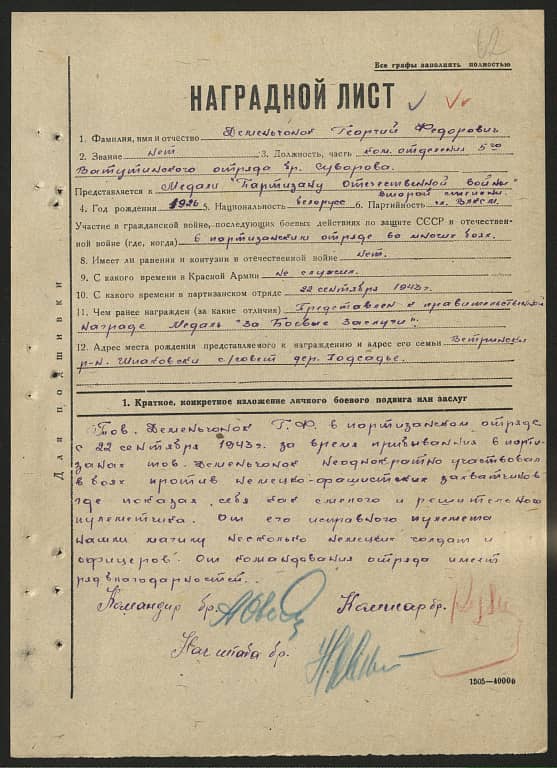 62
Все графы заполнять полностью
НАГРАДНОЙ ЛИСТ
1. Фамилия, имя и отчество Деменьчонок Георгий Федорович
2. Звание нет 3. Должность, часть ком. отделения 5го
Ватутинского отряда бр. Суворова.
Представляется к Медали "Партизану отечественной войны"
второй степени
4. Год рождения 1926 5. Национальность белорус 6. Партийность чл. ВЛКСМ.
Участие в гражданской войне, последующих боевых действиях по защите СССР и отечествен-
ной войне (где, когда) в партизанском отряде во многих боях.
8. Имеет ли ранения и контузии в отечественной войне нет.
9. С какого времени в Красной Армии не служил.
10. С какого времени в партизанском отряде 22 сентября 1943 г.
11. Чем ранее награжден (за какие отличия) Представлен к правительственной
награде Медаль "За Боевые Заслуги".
12. Адрес места рождения представляемого к награждению и адрес его семьи Ветринский
р-н. Шпаковски с/совет дер. Годсадье.
Для подшивки
1. Краткое, конкретное изложение личного боевого подвига или заслуг
Тов. Деменьчонок Г.Ф. в партизанском отряде
с 22 сентября 1943 г. за время прибывания в парти-
занах тов. Деменьчонок неоднократно участвовал
в боях против немецко-фашистских захватчиков
где показал себя как смелого и решителеного
пулеметчика. От его исправного пулемета
нашли магилу несколько немецких солдат и
офицеров. От командования отряда имеет
ряд благодарностей.
Командир бр. Комиссар бр.
Нач штаба бр.
1505—40000